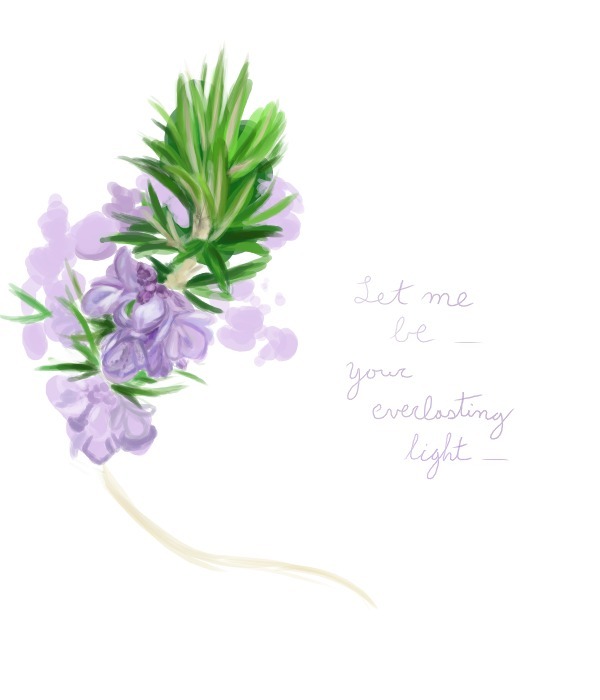 Let me
be —
your
everlasting
light —